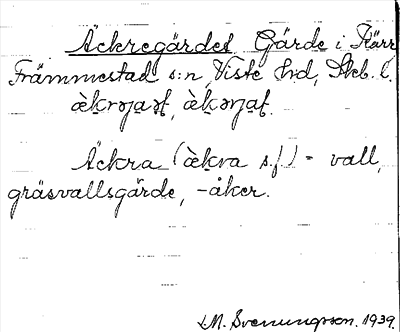 Äckregärdet Gärde i Kärr,
Främmestad s:n, Viste hrd, Skb. l.
Äckra (æ̀kra s.f.) = vall,
gräsvallsgärde, -åker.
L.M. Svenungsson. 1939.